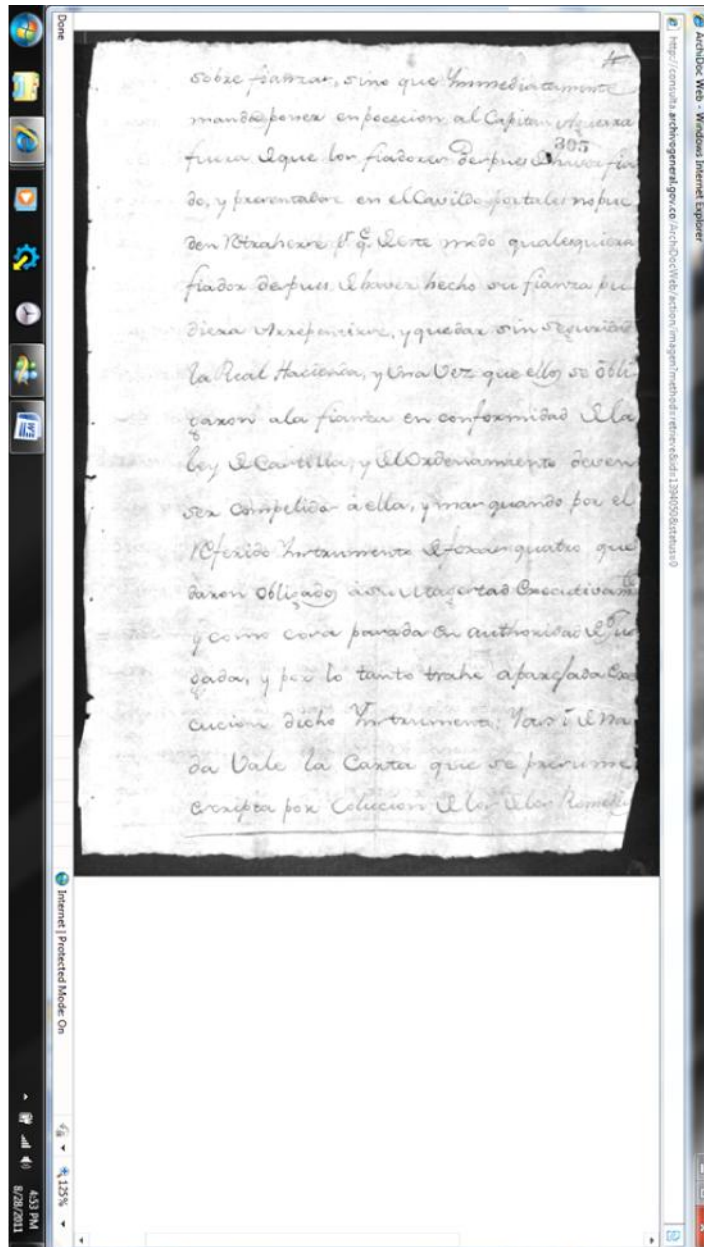 ArchiDoc Web - Windows Internet Explorer
http://consulta.archivogeneral.gov.co/ArchiDocWeb/action/imagen?method=retrieve&id=1394050&status=0
305
sobre fianzas, sino que Ymmediatamente
mande poner en pocecion al Capitan Aguerra
fuera de que los fiadores despues de haver fia
do, y presentadose en el Cavildo por tales no pue
den Retraherse pr. qe. de este modo qualesquiera
fiador despues de haver hecho su fianza pu
diera Arrepentirse, y quedar sin seguridad
la Real Hacienda, y Una Vez que ellos se obli
garon a la fianza en conformidad de la
Ley de Castilla, y del Ordenamiento deven
ser compelidos a ella, y mas quando por el
Referido Ynstrumento de foxas quatro que
daron obligados a su Magestad Executivamte
y como cosa pasada en authoridad de
gada, y por lo tanto trahe aparejada Exe
cucion dicho Ynstrumento: Y assi de na
da Vale la Carta que se presume
escripta por colucion de los de los
Done
Internet | Protected Mode: On
125%
4:53 PM
8/28/2011